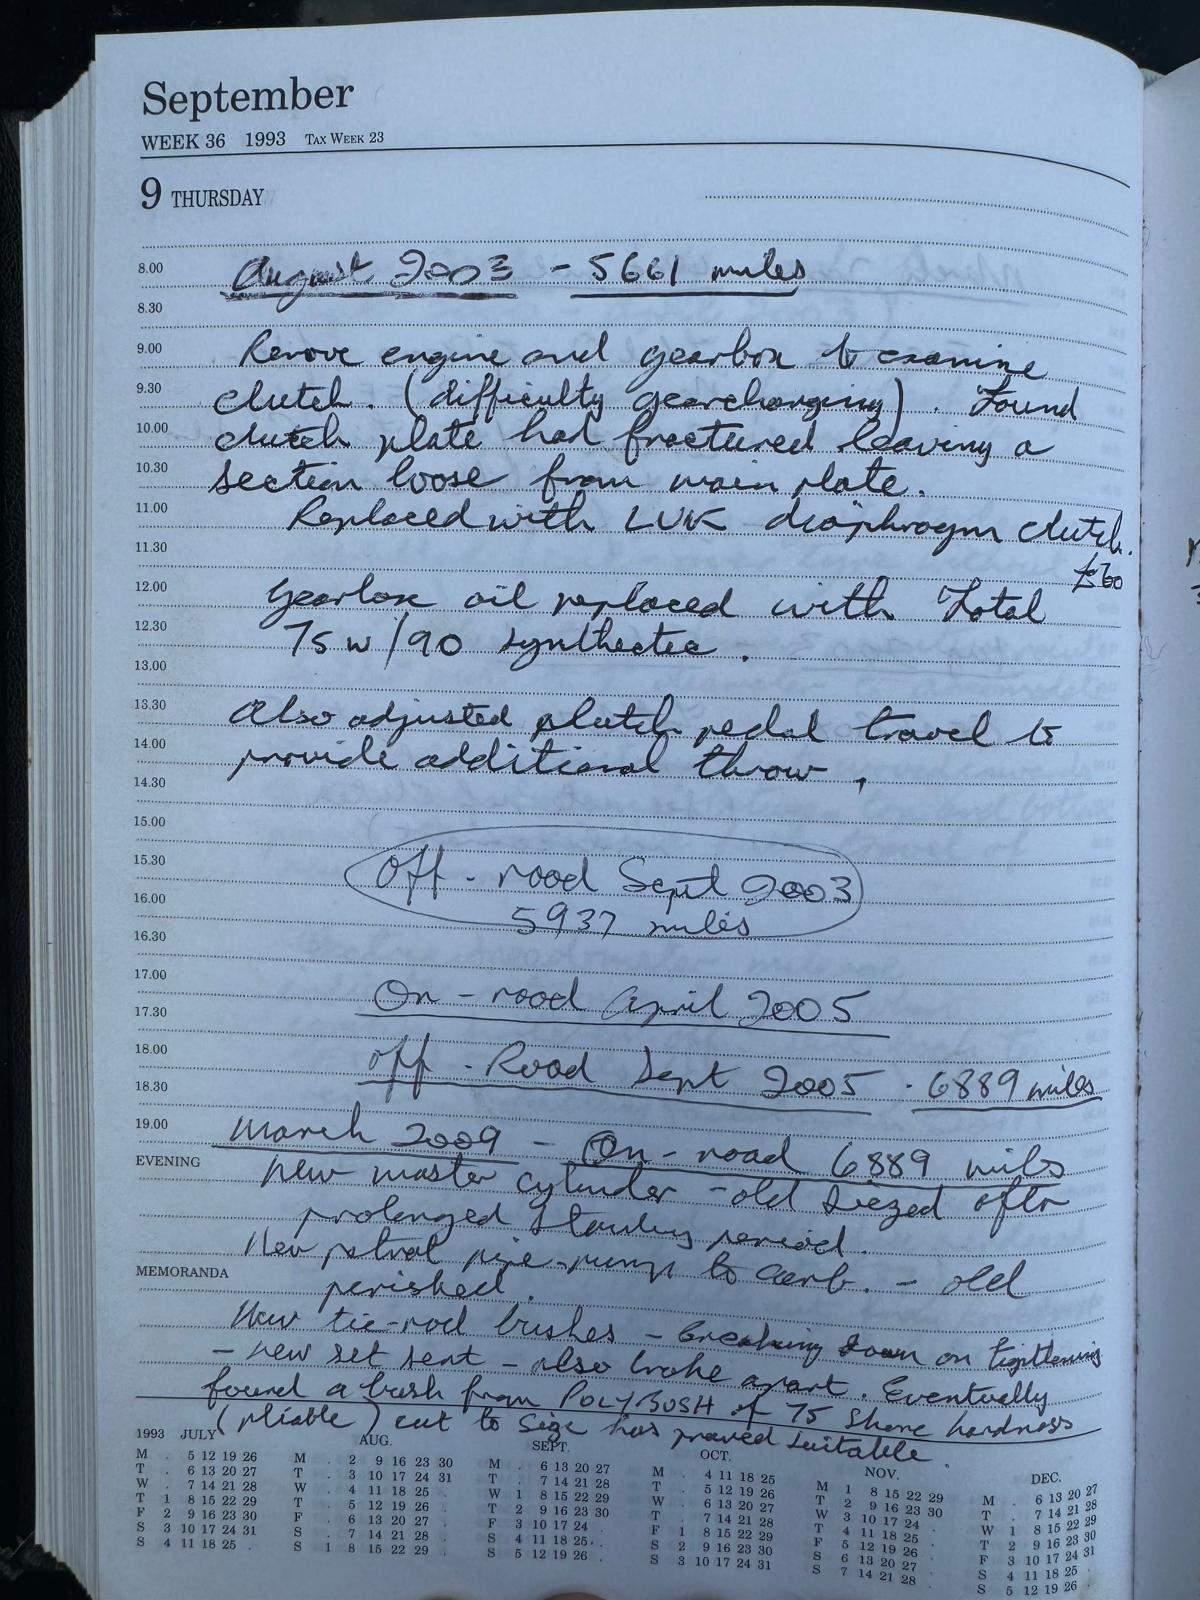 September
WEEK 36 1993 TAX WEEK 23
9 THURSDAY
8.00 August 2003 - 5661 miles
8.30
9.00 Remove engine and gearbox to examine
9.30 clutch. (difficulty gearchanging). Found
10.00 clutch plate had fractured leaving a
10.30 section loose from main plate.
11.00 Replaced with LUK diaphragm clutch.
11.30 £60
12.00 Gearbox oil replaced with Total
12.30 75w/90 synthetic.
13.00
13.30 Also adjusted clutch pedal travel to
14.00 provide additional throw.
14.30
15.00
15.30 Off-road Sept 2003
16.00 5937 miles
16.30
17.00 On-road April 2005
17.30
18.00 Off-Road Sept 2005 - 6889 miles
18.30
19.00 March 2009 - On-road 6889 miles
EVENING New master cylinder - old siezed after
prolonged standing period.
New petrol pipe - pump to carb. - old
MEMORANDA perished.
New tie-rod bushes - breaking down on tightening
- new set sent - also broke apart. Eventually
found a bush from POLYBUSH of 75 Shore hardness
(pliable) cut to size has proved suitable.
1993 JULY AUG. SEPT. OCT. NOV. DEC.
M . 5 12 19 26 M . 2 9 16 23 30 M . 6 13 20 27 M . 4 11 18 25 M 1 8 15 22 29 M . 6 13 20 27
T . 6 13 20 27 T . 3 10 17 24 31 T . 7 14 21 28 T . 5 12 19 26 T 2 9 16 23 30 T . 7 14 21 28
W . 7 14 21 28 W . 4 11 18 25 . W 1 8 15 22 29 W . 6 13 20 27 W 3 10 17 24 . W 1 8 15 22 29
T 1 8 15 22 29 T . 5 12 19 26 . T 2 9 16 23 30 T . 7 14 21 28 T 4 11 18 25 . T 2 9 16 23 30
F 2 9 16 23 30 F . 6 13 20 27 . F 3 10 17 24 . F 1 8 15 22 29 F 5 12 19 26 . F 3 10 17 24 31
S 3 10 17 24 31 S . 7 14 21 28 . S 4 11 18 25 . S 2 9 16 23 30 S 6 13 20 27 . S 4 11 18 25 .
S 4 11 18 25 . S 1 8 15 22 29 . S 5 12 19 26 . S 3 10 17 24 31 S 7 14 21 28 . S 5 12 19 26 .